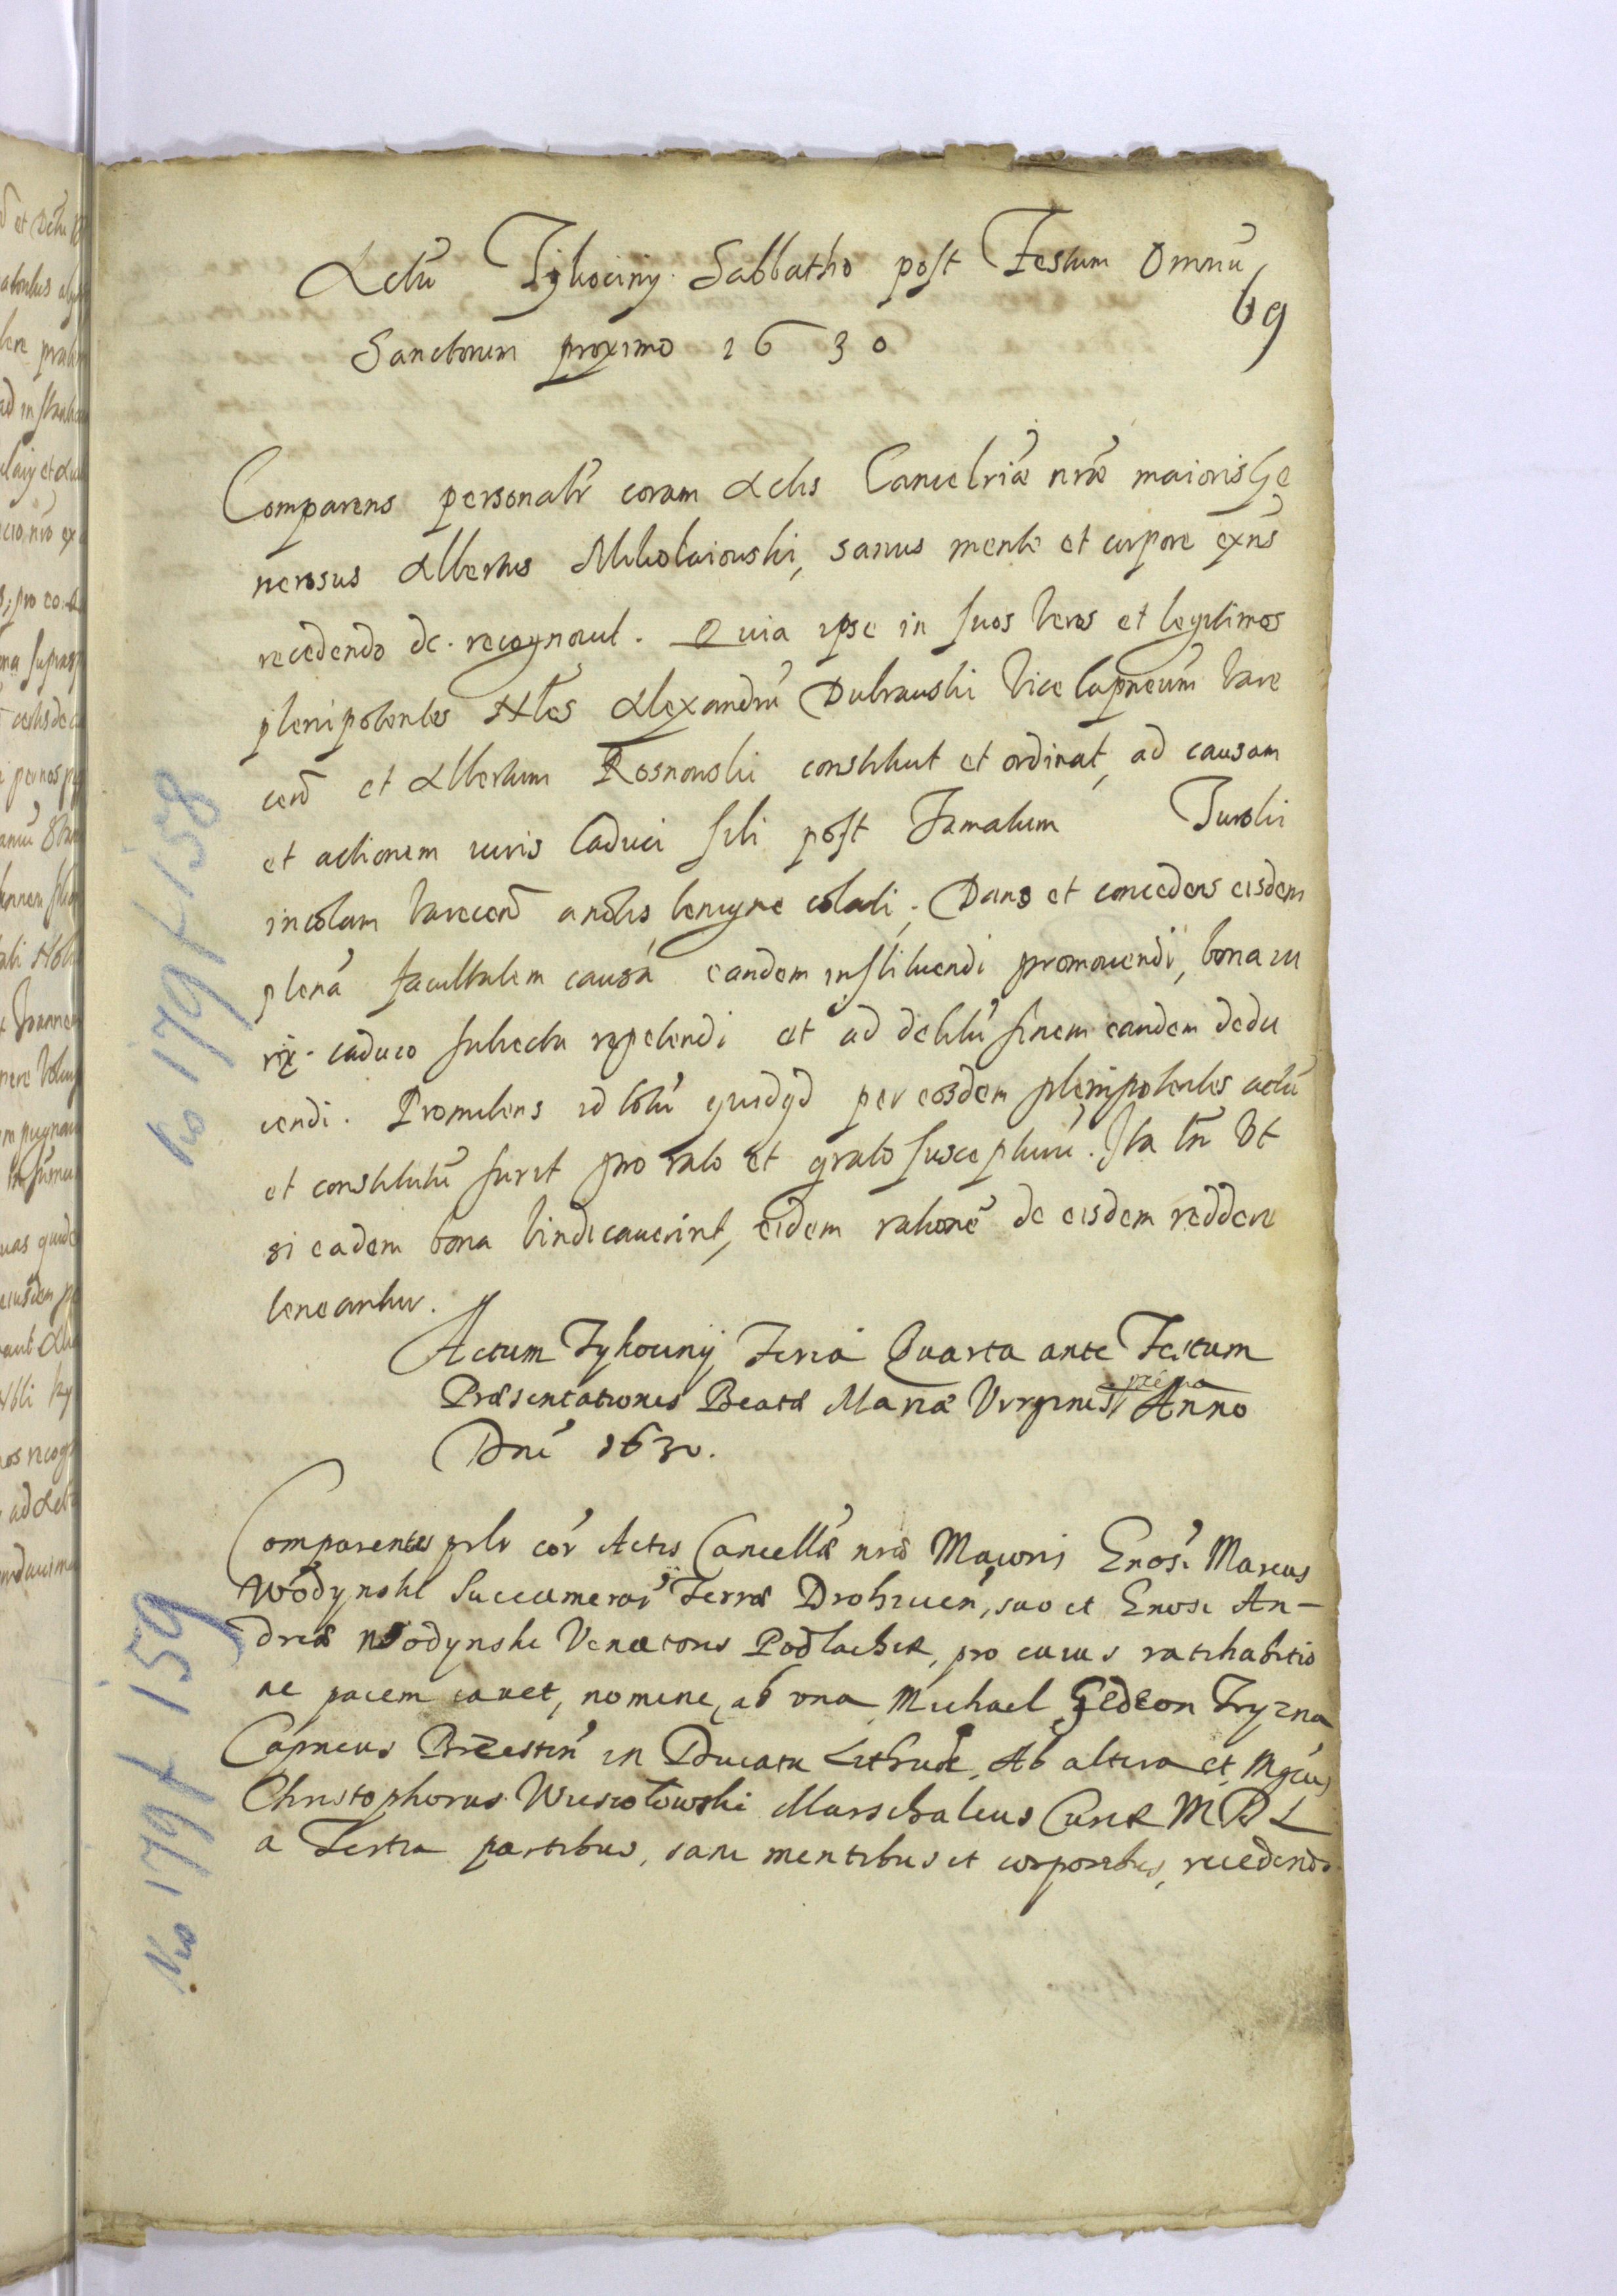 Actū Tykociny Sabbatho post Festum Omniū
69
Sanctorum proximo 1630
Comparens personalr̄ coram Actis Cancelriæ nr̄æ maioris Ge
nerosus Albertus Mikolaiouski, sanus mente et corpore exn̄s
recedendo etc. recognouit. Quia ipse in suos veros et legitimos
plenipotentes Nbles Alexandrū Dubrauski Vice Capneūm Vare
cen̄ et Albertum Rosnouski constituit et ordinat, ad causam
et actionem iuris Caduci sibi post Famatum Turski
incolam Varecen̄ benigne collati. Dans et concedens eisdem
plenā facultatem causā eandem instituendi promouendi, bona iu
ri caduco subiecta repetendi et ad debitū finem eandem dedu
cendi. Promittens id totū quidqd per eosdem plenipotentes actū
et constitutū fuerit pro rato et grato suscepturū. Ita tn̄ Vt
si eadem bona vindicauerint, eidem rationē de eisdem reddere
teneantur.
Actum Tykociny Feria Quarta ante Festum
Præsentationis Beatæ Mariæ Virginis Anno
Dni 1630.
Comparentes prlr cor̄ Actis Cancellæ nræ Maioris Gnosi Marcus
Wodynski Succamerarȷ̈ Terræ Drohicen̄, suo et Gnosi An-
dreæ Wodynski Venatoris Podlachiæ, pro cuius ratihabitio
ne pacem cauet, nomine, ab vna Michael Gedeon Tryzna
Capneus Brzestin̄ in Ducatu Lithuæ, Ab altera et Mgcus
Christophorus Wiesiolowski Marschalcus Curiæ M D L
a Tertia partibus, sani mentibus et corporibus, recedendo
No 179 f 158
No 179 f 159